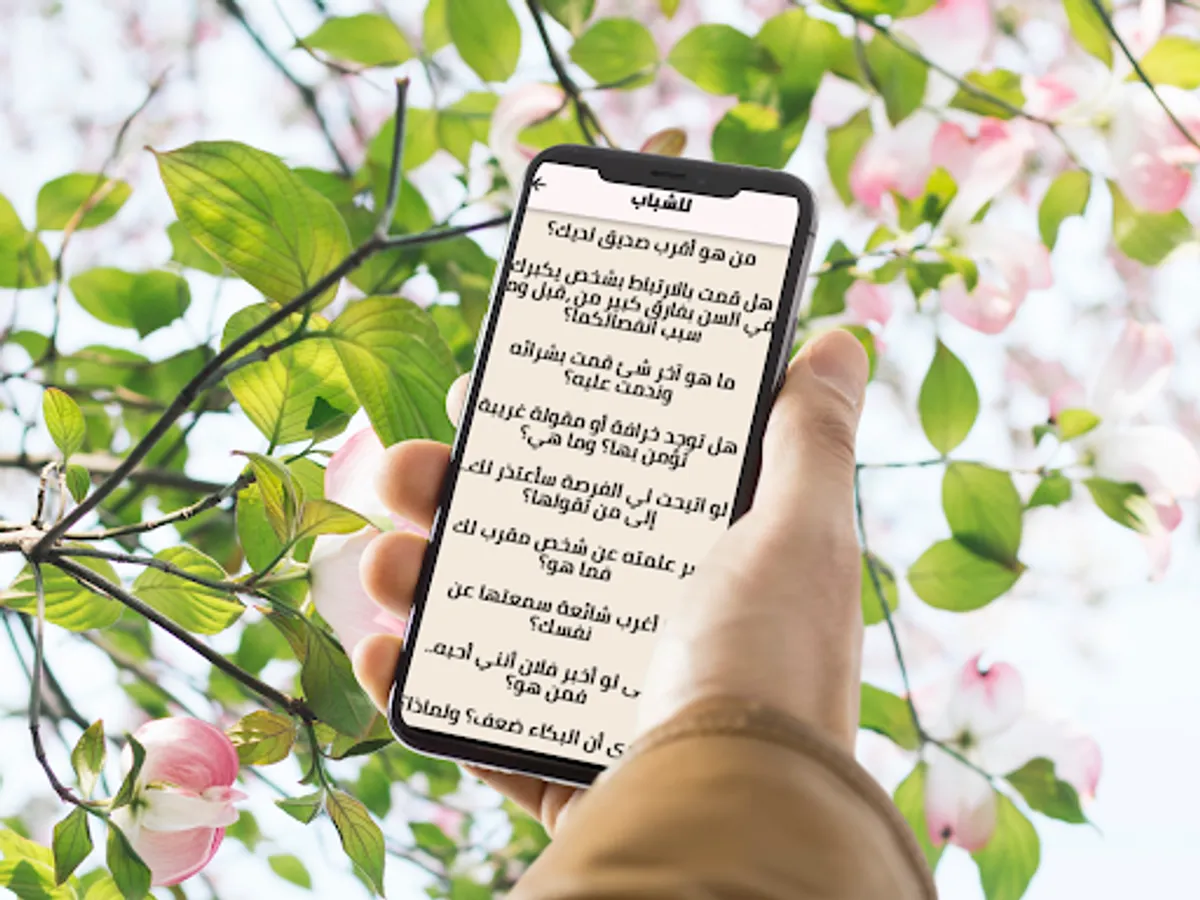 للشباب
من هو أقرب صديق لديك؟
هل قمت بالارتباط بشخص يكبرك
في السن بفارق كبير من قبل
سبب انفصالكما؟
ما هو آخر شئ قمت بشرائه
وندمت عليه؟
هل توجد خرافة أو مقولة غريبة
تؤمن بها؟ وما هي؟
لو اتيحت لي الفرصة سأعتذر لك..
إلى من تقولها؟
علمته عن شخص مقرب لك
فما هو؟
أغرب شائعة سمعتها عن
نفسك؟
لو أخبر فلان أنني أحبه..
فمن هو؟
أن البكاء ضعف؟ ولماذا؟